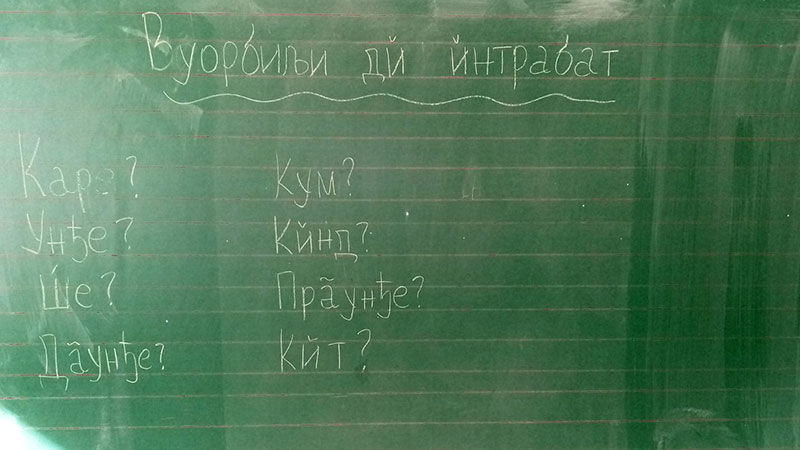 Вуорбиљи дй йнтрабат
Каре?
Унђе?
Ш́е?
Да̃унђе?
Кум?
Кйнд?
Пра̃унђе?
Кйт?